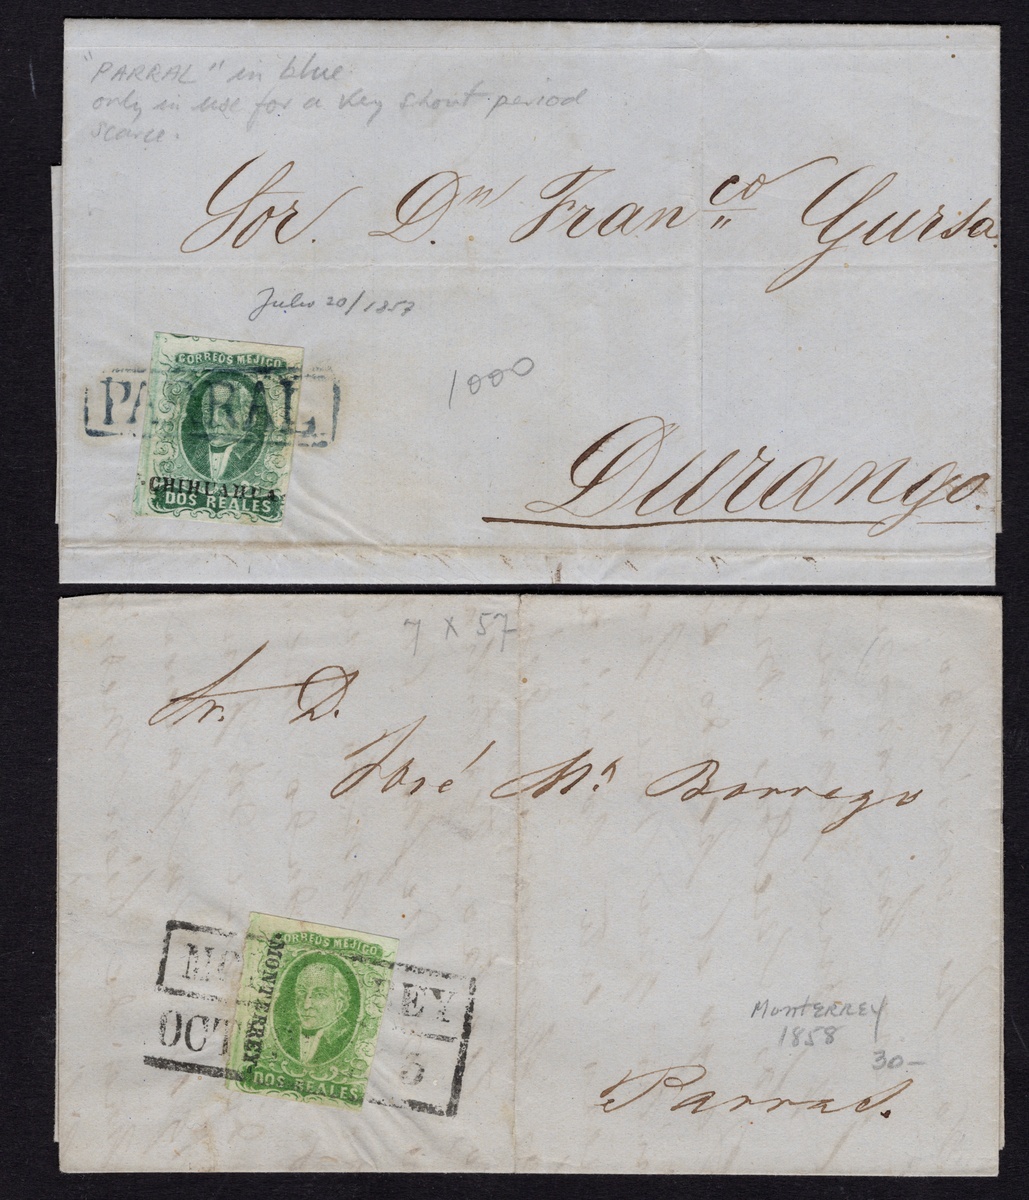 "PARRAL" in blue
only in use for a very short period
scarce.
Sor. Dn Fran.co Gursa
Julio 20/1857
CORREOS MEJICO
PARRAL
CHIHUAHUA
DOS REALES
1000
Durango.
7 X 57
Sr. D.
José Ma. Borrego
CORREOS MEJICO
MONTERREY
MO EY
OCT 3
DOS REALES
Monterrey
1858
30-
Parral.